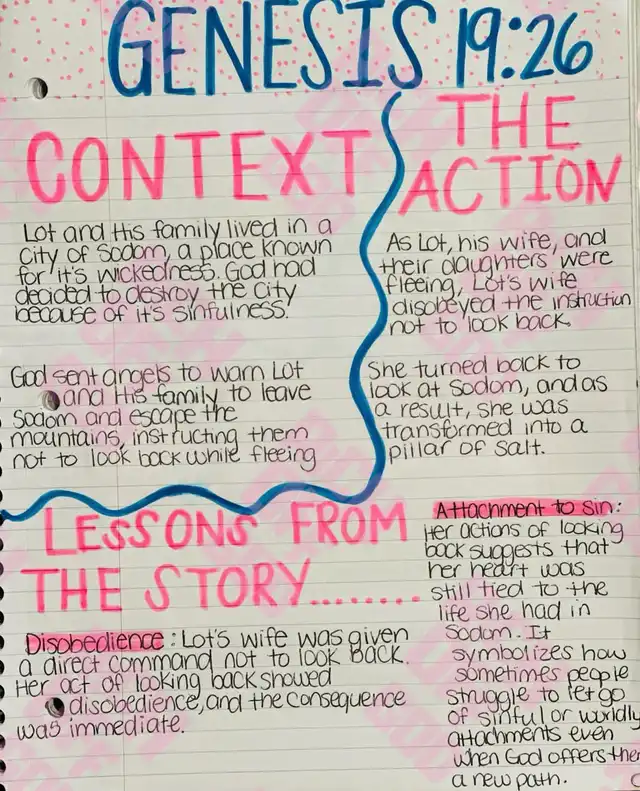 GENESIS 19:26
CONTEXT
Lot and His family lived in a
city of Sodom, a place known
for it's wickedness. God had
decided to destroy the city
because of it's sinfulness.
God sent angels to warn Lot
and His family to leave
Sodom and escape the
mountains, instructing them
not to look back while fleeing
THE
ACTION
As Lot, his wife, and
their daughters were
fleeing, Lot's wife
disobeyed the instruction
not to look back.
She turned back to
look at Sodom, and as
a result, she was
transformed into a
pillar of salt.
LESSONS FROM
THE STORY........
Disobedience: Lot's wife was given
a direct command not to look back.
Her act of looking back showed
disobedience, and the consequence
was immediate.
Attachment to sin:
Her actions of looking
back suggests that
her heart was
still tied to the
life she had in
Sodom. It
symbolizes how
sometimes people
struggle to let go
of sinful or worldly
attachments even
when God offers
a new path.